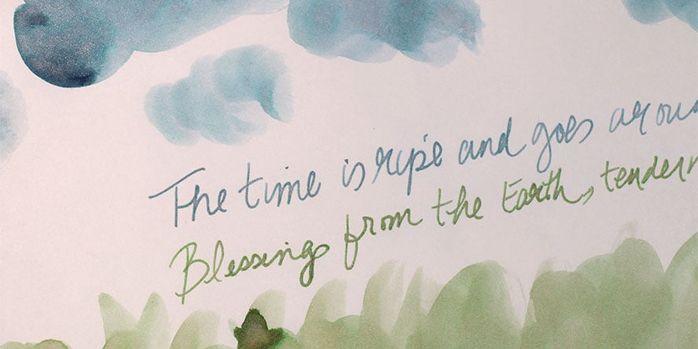 The time is ripe and goes arou
Blessings from the Earth, tendern